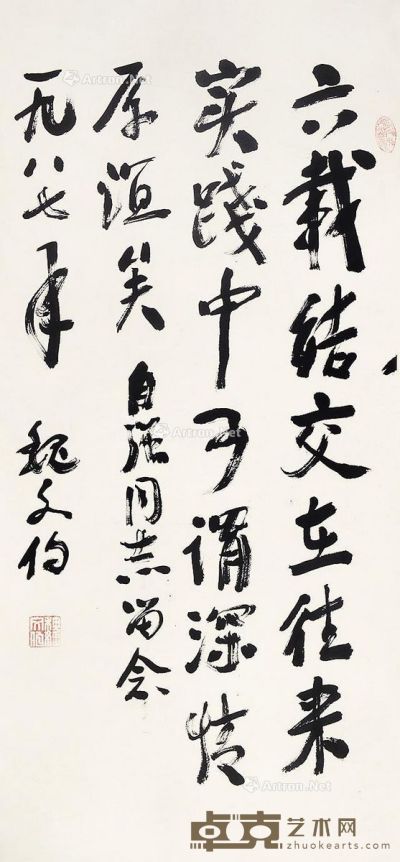 六载结交在往来
实践中可谓深情
厚谊矣 自强同志留念
一九八七年 魏文伯
Artron.Net
Artron.Net
Artron.Net
Artron.Net
卓克艺术网
zhuokearts.com